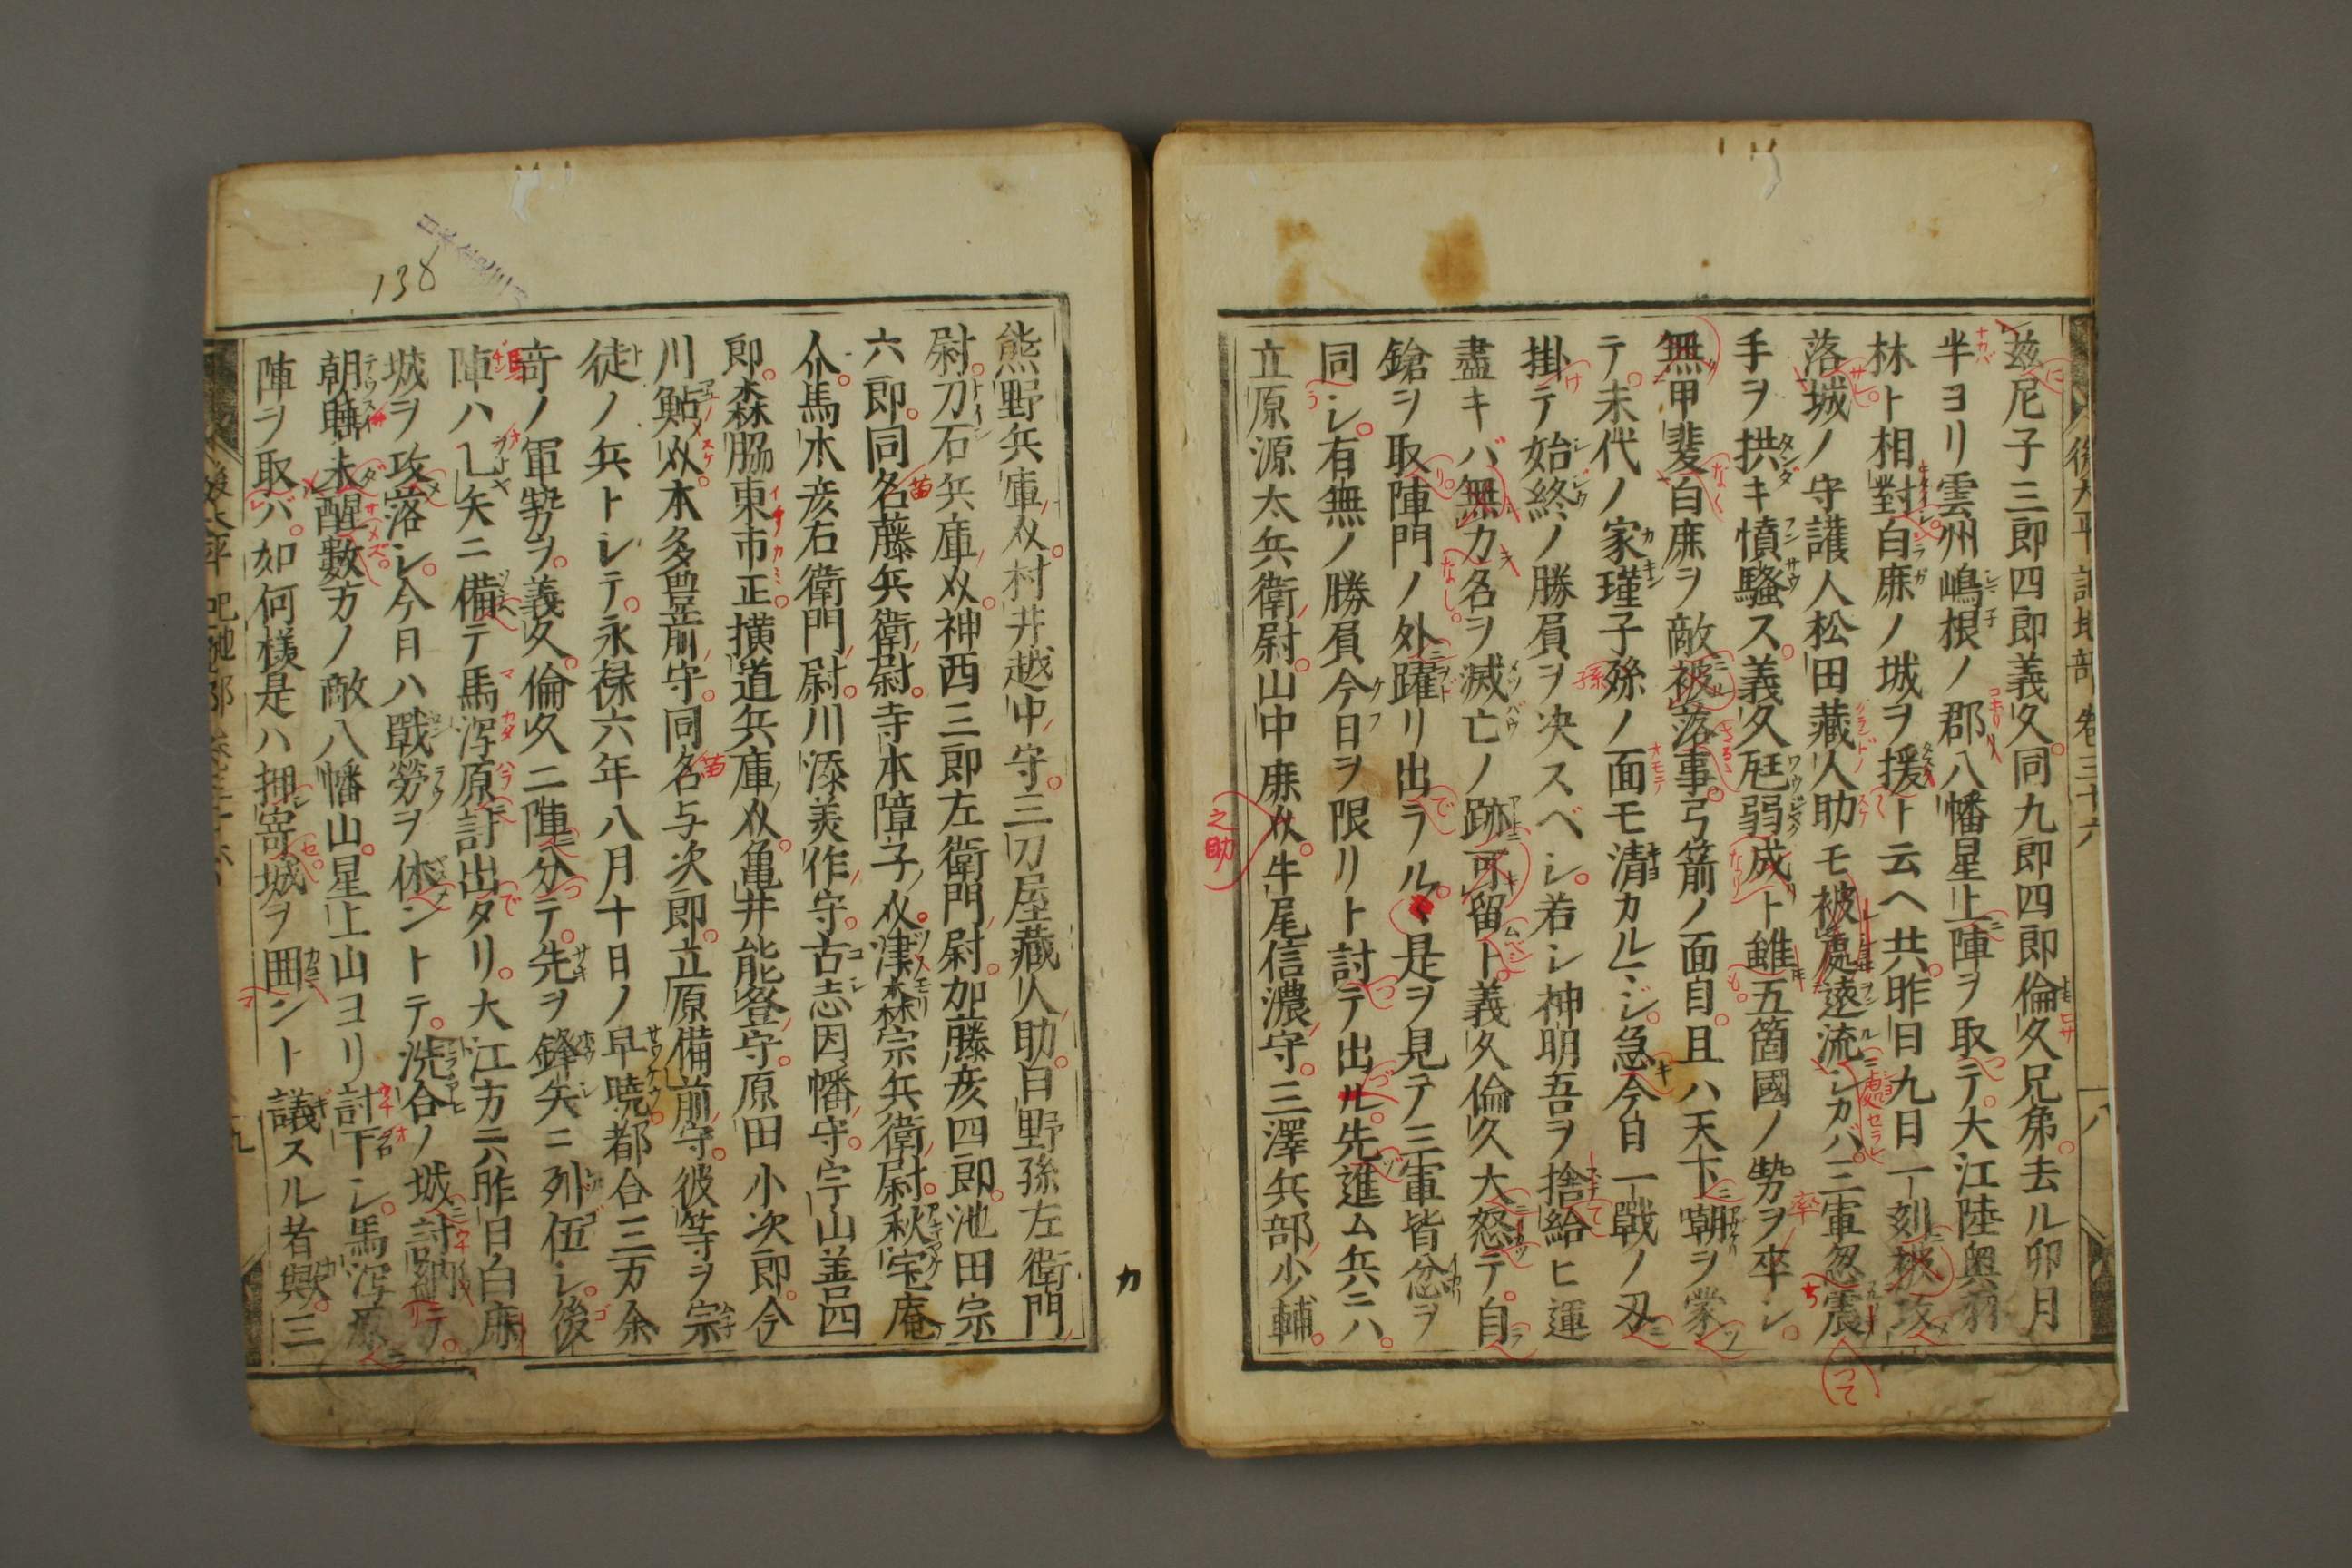 後太平記地部 巻三十六
八
玆尼子三郎四郎義久同九郎四郎倫久兄弟去ル卯月
半ヨリ雲州嶋根ノ郡八幡星上陣ヲ取テ大江陸奥羽
林ト相對白鹿ノ城ヲ援ト云ヘ共昨日九日一刻被攻
落城ノ守護人松田藏人助モ被處遠流シカバ三軍忽震
手ヲ拱キ憤騒ス義久尫弱成ト雖五箇國ノ勢ヲ卒シ
無甲斐白鹿ヲ敵被落事弓箭ノ面目且ハ天下嘲ヲ蒙
テ末代ノ家瑾子孫ノ面モ清カルヽジ急今日一戰ノ刃
掛テ始終ノ勝負ヲ决スベシ若シ神明吾ヲ捨給ヒ運
盡キバ無力名ヲ滅亡ノ跡可留ト義久倫久大怒テ自
鎗ヲ取陣門ノ外躍リ出ラル是ヲ見テ三軍皆忿ヲ
同シ有無ノ勝負今日ヲ限リト討テ出ル先進ム兵ニハ
立原源太兵衛尉山中鹿从牛尾信濃守三澤兵部少輔
之助
熊野兵庫从村井越中守三刀屋藏人助白野孫左衛門
尉刀石兵庫从神西三郎左衛門尉加藤彦四郎池田宗
六郎同名藤兵衛尉寺本障子从津森宗兵衛尉秋宅庵
介馬木彦右衛門尉川添美作守古志因幡守宇山善四
郎森脇東市正横道兵庫从亀井能登守原田小次郎今
川鮎从本多豊前守同名与次郎立原備前守彼等ヲ宗
徒ノ兵トシテ永禄六年八月十日ノ早曉都合三万余
竒ノ軍勢ヲ義久倫久二陣分テ先ヲ鋒矢ニ列伍シ後
陣ハ乚矢ニ備テ馬泻原討出タリ大江方ニ六昨日白鹿
城ヲ攻落シ今日ハ戰勞ヲ休ントテ洗合ノ城討納テ
朝睡未醒數万ノ敵八幡山星上山ヨリ討下シ馬泻原
陣ヲ取バ如何様是ハ押寄城ヲ囲ント議スル者歟三
138
カ
九